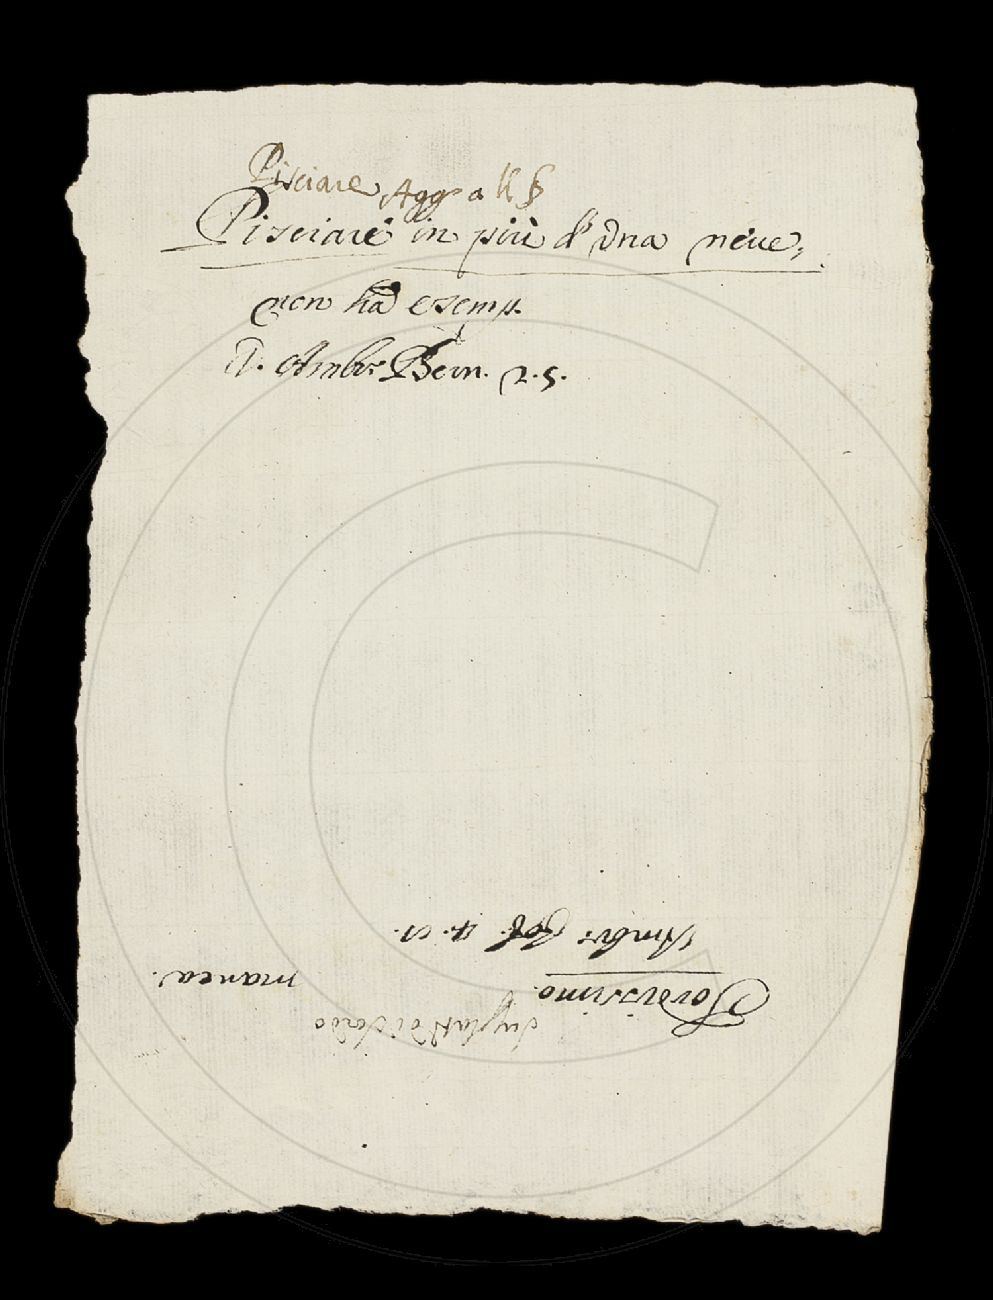 Pisciare Agg. a
Pisciare in più d'una neve,
non ha esemp.
A. Ambr. Bern. 2. 5.
Sordissimo. manca.
Ambr. Cof. 4.